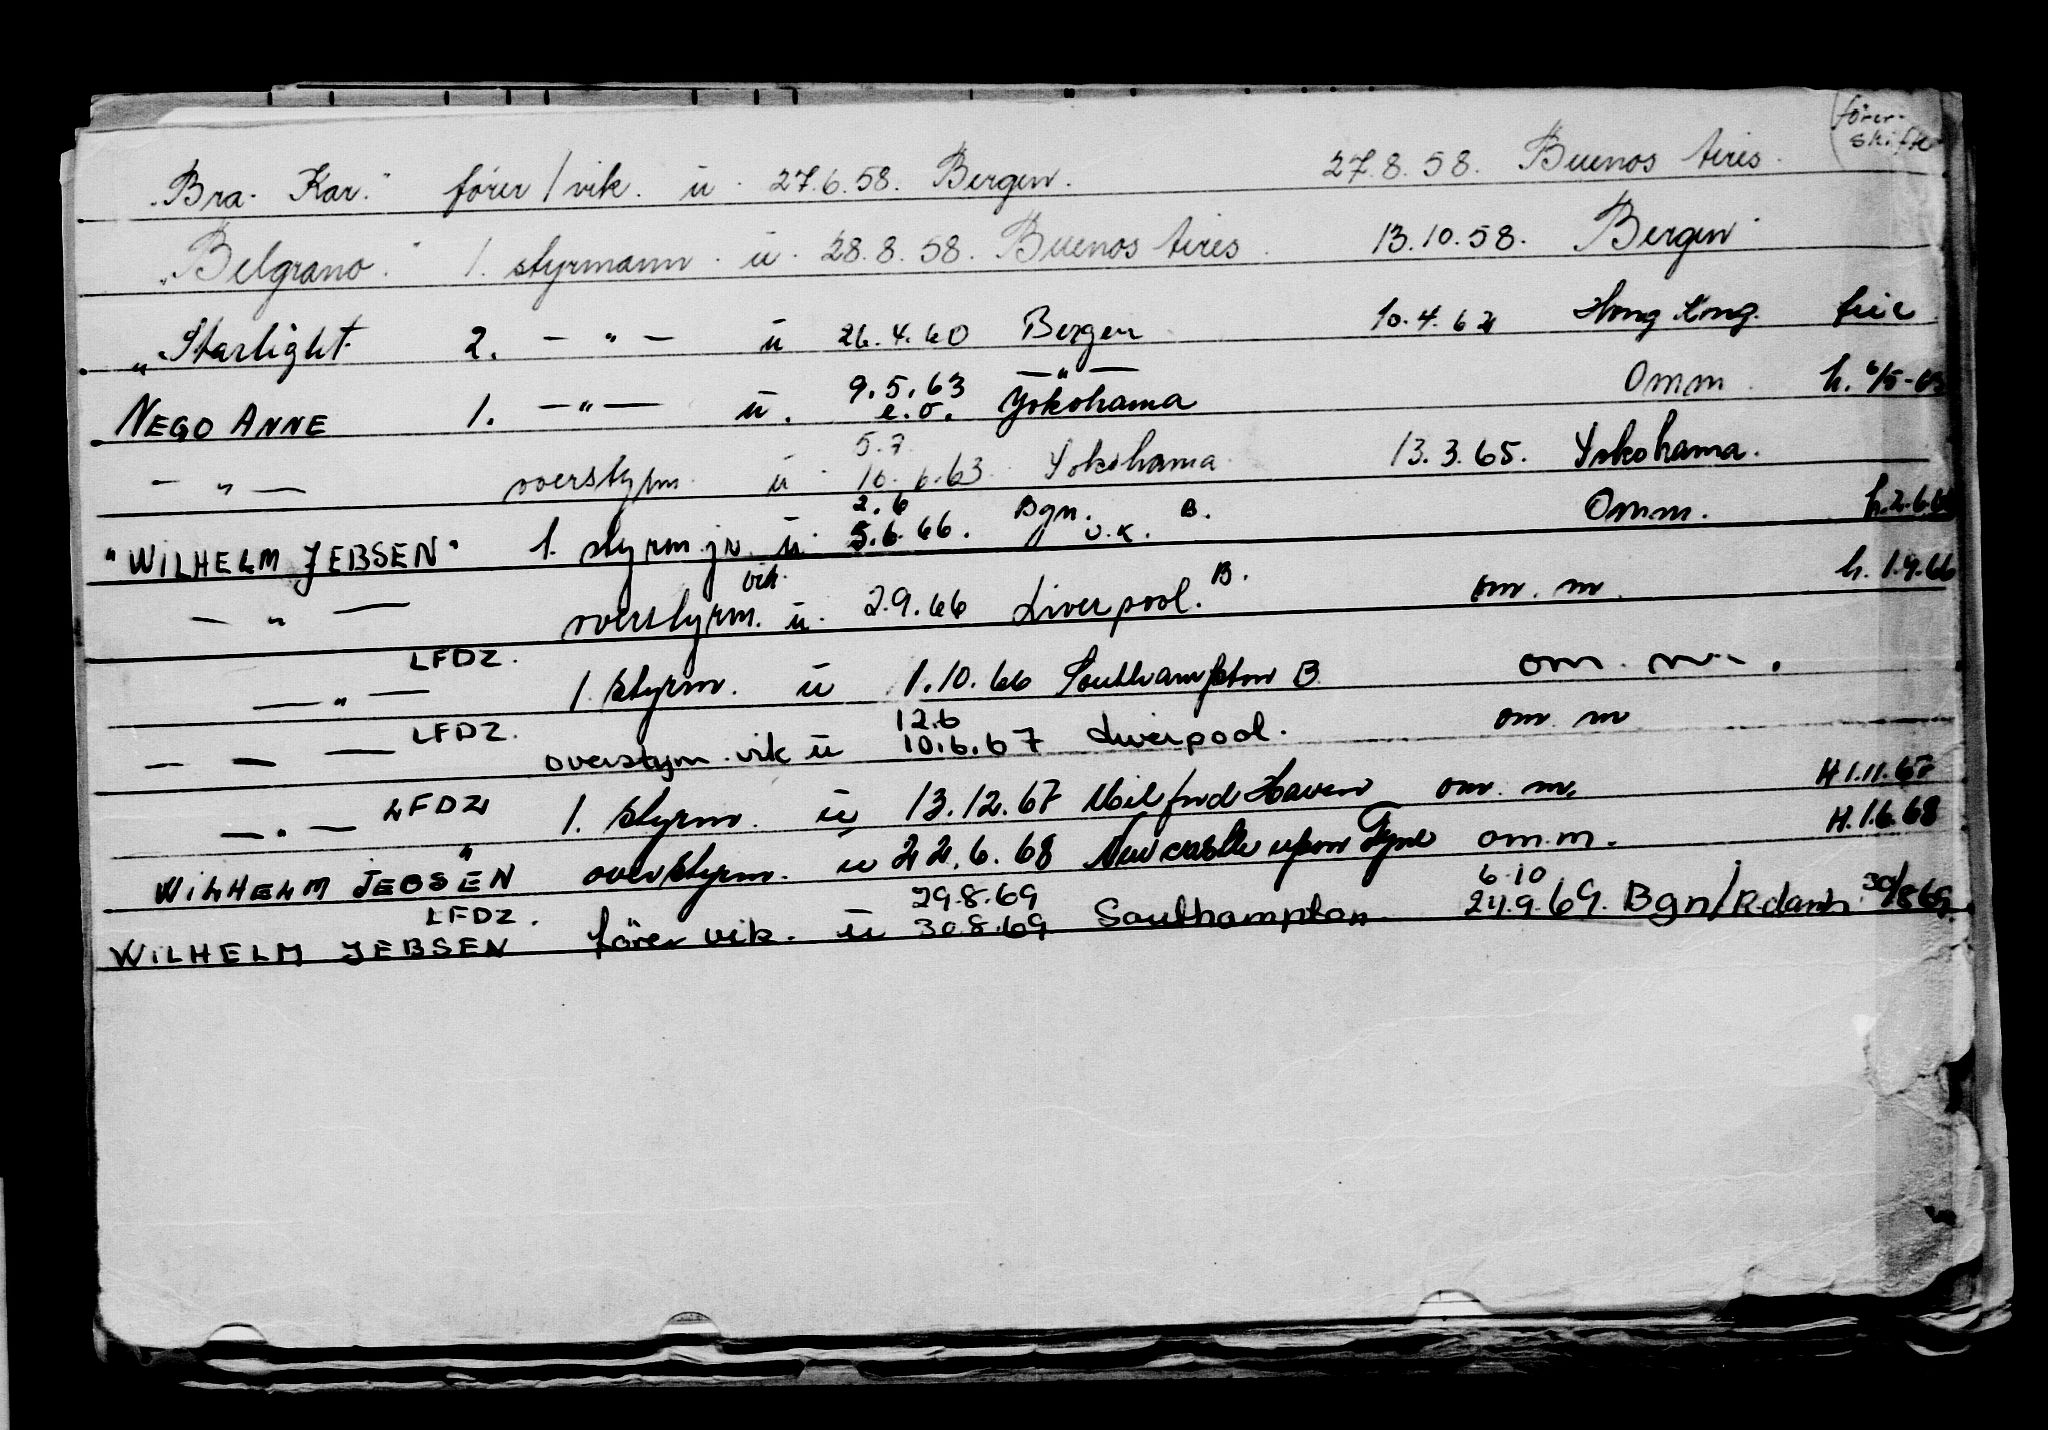 fører-
skifte
"Bra-Kar." fører/vik. u 27.6.58. Bergen. 27.8.58. Buenos Aires.
"Belgrano." 1. styrmann. u. 28.8.58. Buenos Aires. 13.10.58. Bergen
"Starlight 2. — " — u 26.4.60 Bergen 10.4.62 Hong Kong.
9.5.63 — " —
NEGO ANNE 1. — " — u. e.o. Yokohama Omm. h. 6/5-63
5.7.
— " — overstyrm. u 16.6.63. Yokohama 13.3.65. Yokohama.
2.6 Bgn. B.
"WILHELM JEBSEN" 1. styrm. jr. u. 5.6.66. U.K. Omm. h.2.6.66
vik.
— " — overstyrm. u. 2.9.66 Liverpool. B. om. m. h. 1.9.66
LFDZ.
— " — 1. styrm. u 1.10.66 Southampton B om. m.
LFDZ. 12.6
— — — overstyrm. vik u 10.6.67 Liverpool. om m
LFDZ
— " — 1. styrm. u 13.12.67 Milford Haven om. m. H 1.11.67
WILHELM JEBSEN" overstyrm. u 22.6.68 Newcastle upon Tyne om.m. H.1.6.68
LFDZ. 29.8.69 6.10
WILHELM JEBSEN fører vik. u 30.8.69 Southampton 24.9.69. Bgn/R.dam 30/8 69.